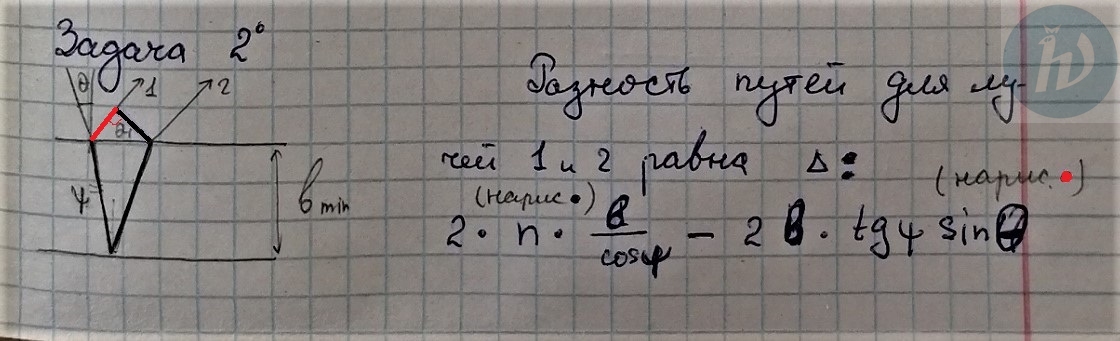 Задача 2°
θ 1 2
θ
ψ
b min
Разность путей для лу-
чей 1 и 2 равна Δ:
(нарис •) (нарис. •)
2 · n · b/cosψ - 2 b · tgψ sinθ